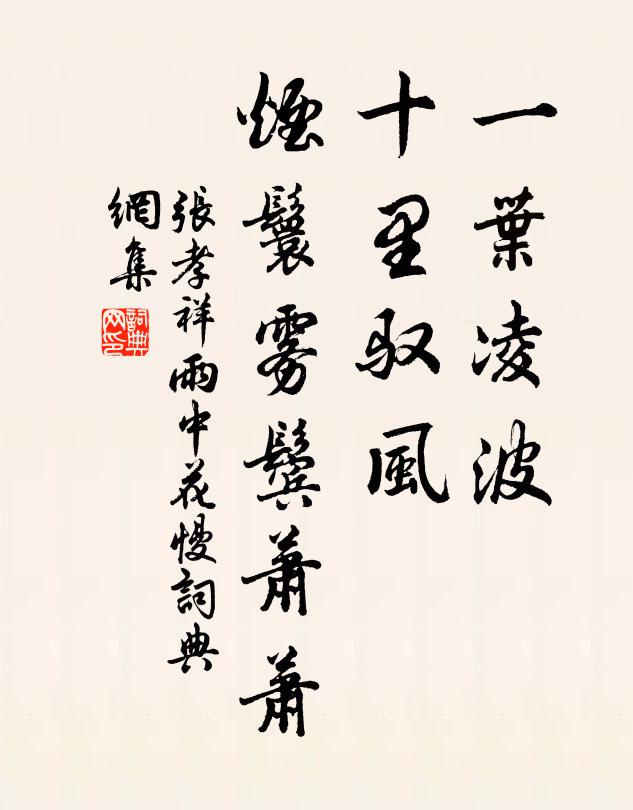 一葉凌波
十里驭風
煙鬟雾鬓蕭蕭
張孝祥雨中花慢詞典
網集
詞典网印